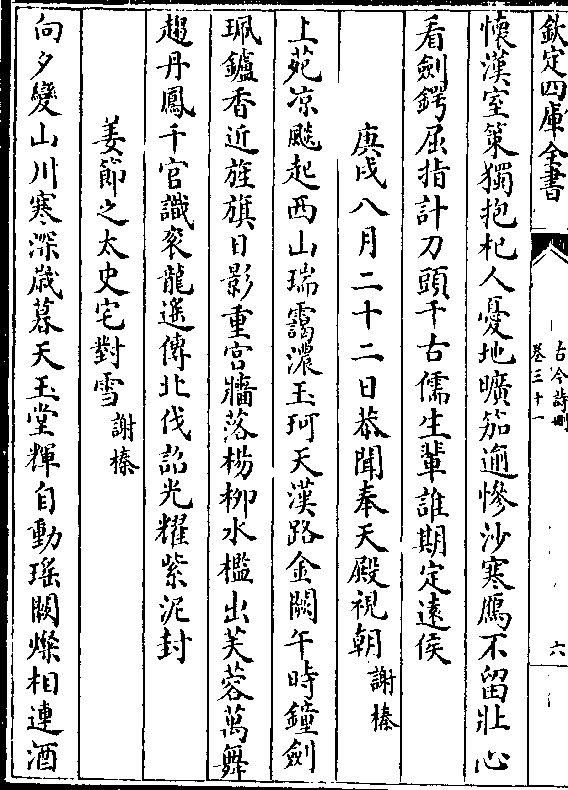 欽定四庫全書
古今詩刪
卷三十一
六
懷漢室策獨抱杞人憂地曠笳逾慘沙寒鴈不留壯心
看劍鍔屈指計刀頭千古儒生輩誰期定遠侯
庚戌八月二十二日恭聞奉天殿視朝 謝榛
上苑凉飈起西山瑞靄濃玉珂天漢路金闕午時鐘劍
珮鑪香近旌旗日影重宮牆落楊柳水檻出芙蓉萬舞
趨丹鳳千官識袞龍遙傳北伐詔光耀紫泥封
姜節之太史宅對雪 謝榛
向夕變山川寒深歲暮天玉堂輝自動瑤闕燦相連酒